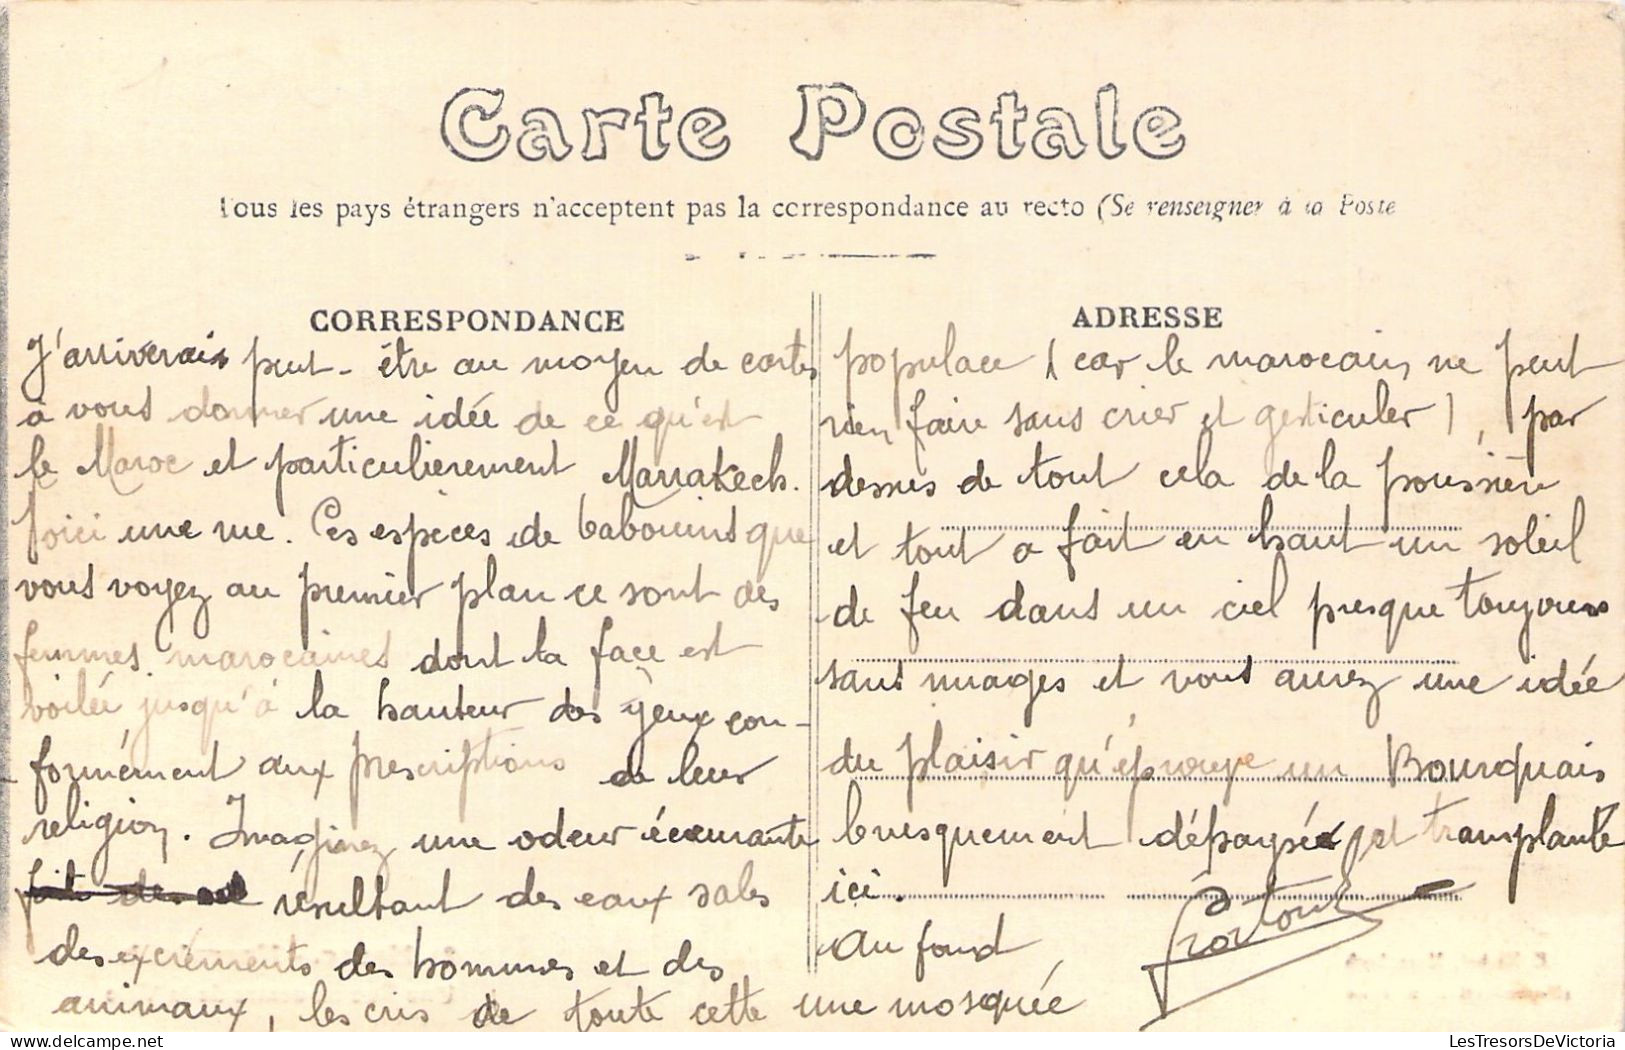 Carte Postale
Tous les pays étrangers n'acceptent pas la correspondance au recto (Se renseigner à la Poste
CORRESPONDANCE
J'arriverais peut-être au moyen de cartes
à vous donner une idée de ce qu'est
le Maroc et particulièrement Marrakech.
Voici une vue. Ces espèces de babouins que
vous voyez au premier plan ce sont des
femmes marocaines dont la face est
voilée jusqu'à la hauteur des yeux con-
formément aux prescriptions de leur
religion. Imaginez une odeur écœurante
résultant des eaux sales
des excréments des hommes et des
animaux, les cris de toute cette
ADRESSE
populace (car le marocain ne peut
rien faire sans crier et gesticuler), par
dessus de tout cela de la poussière
et tout a fait en haut un soleil
de feu dans un ciel presque toujours
sans nuages et vous aurez une idée
du plaisir qu'éprouve un Bourquais
brusquement dépaysé et transplanté
ici.
Au fond
une mosquée
LesTresorsDeVictoria